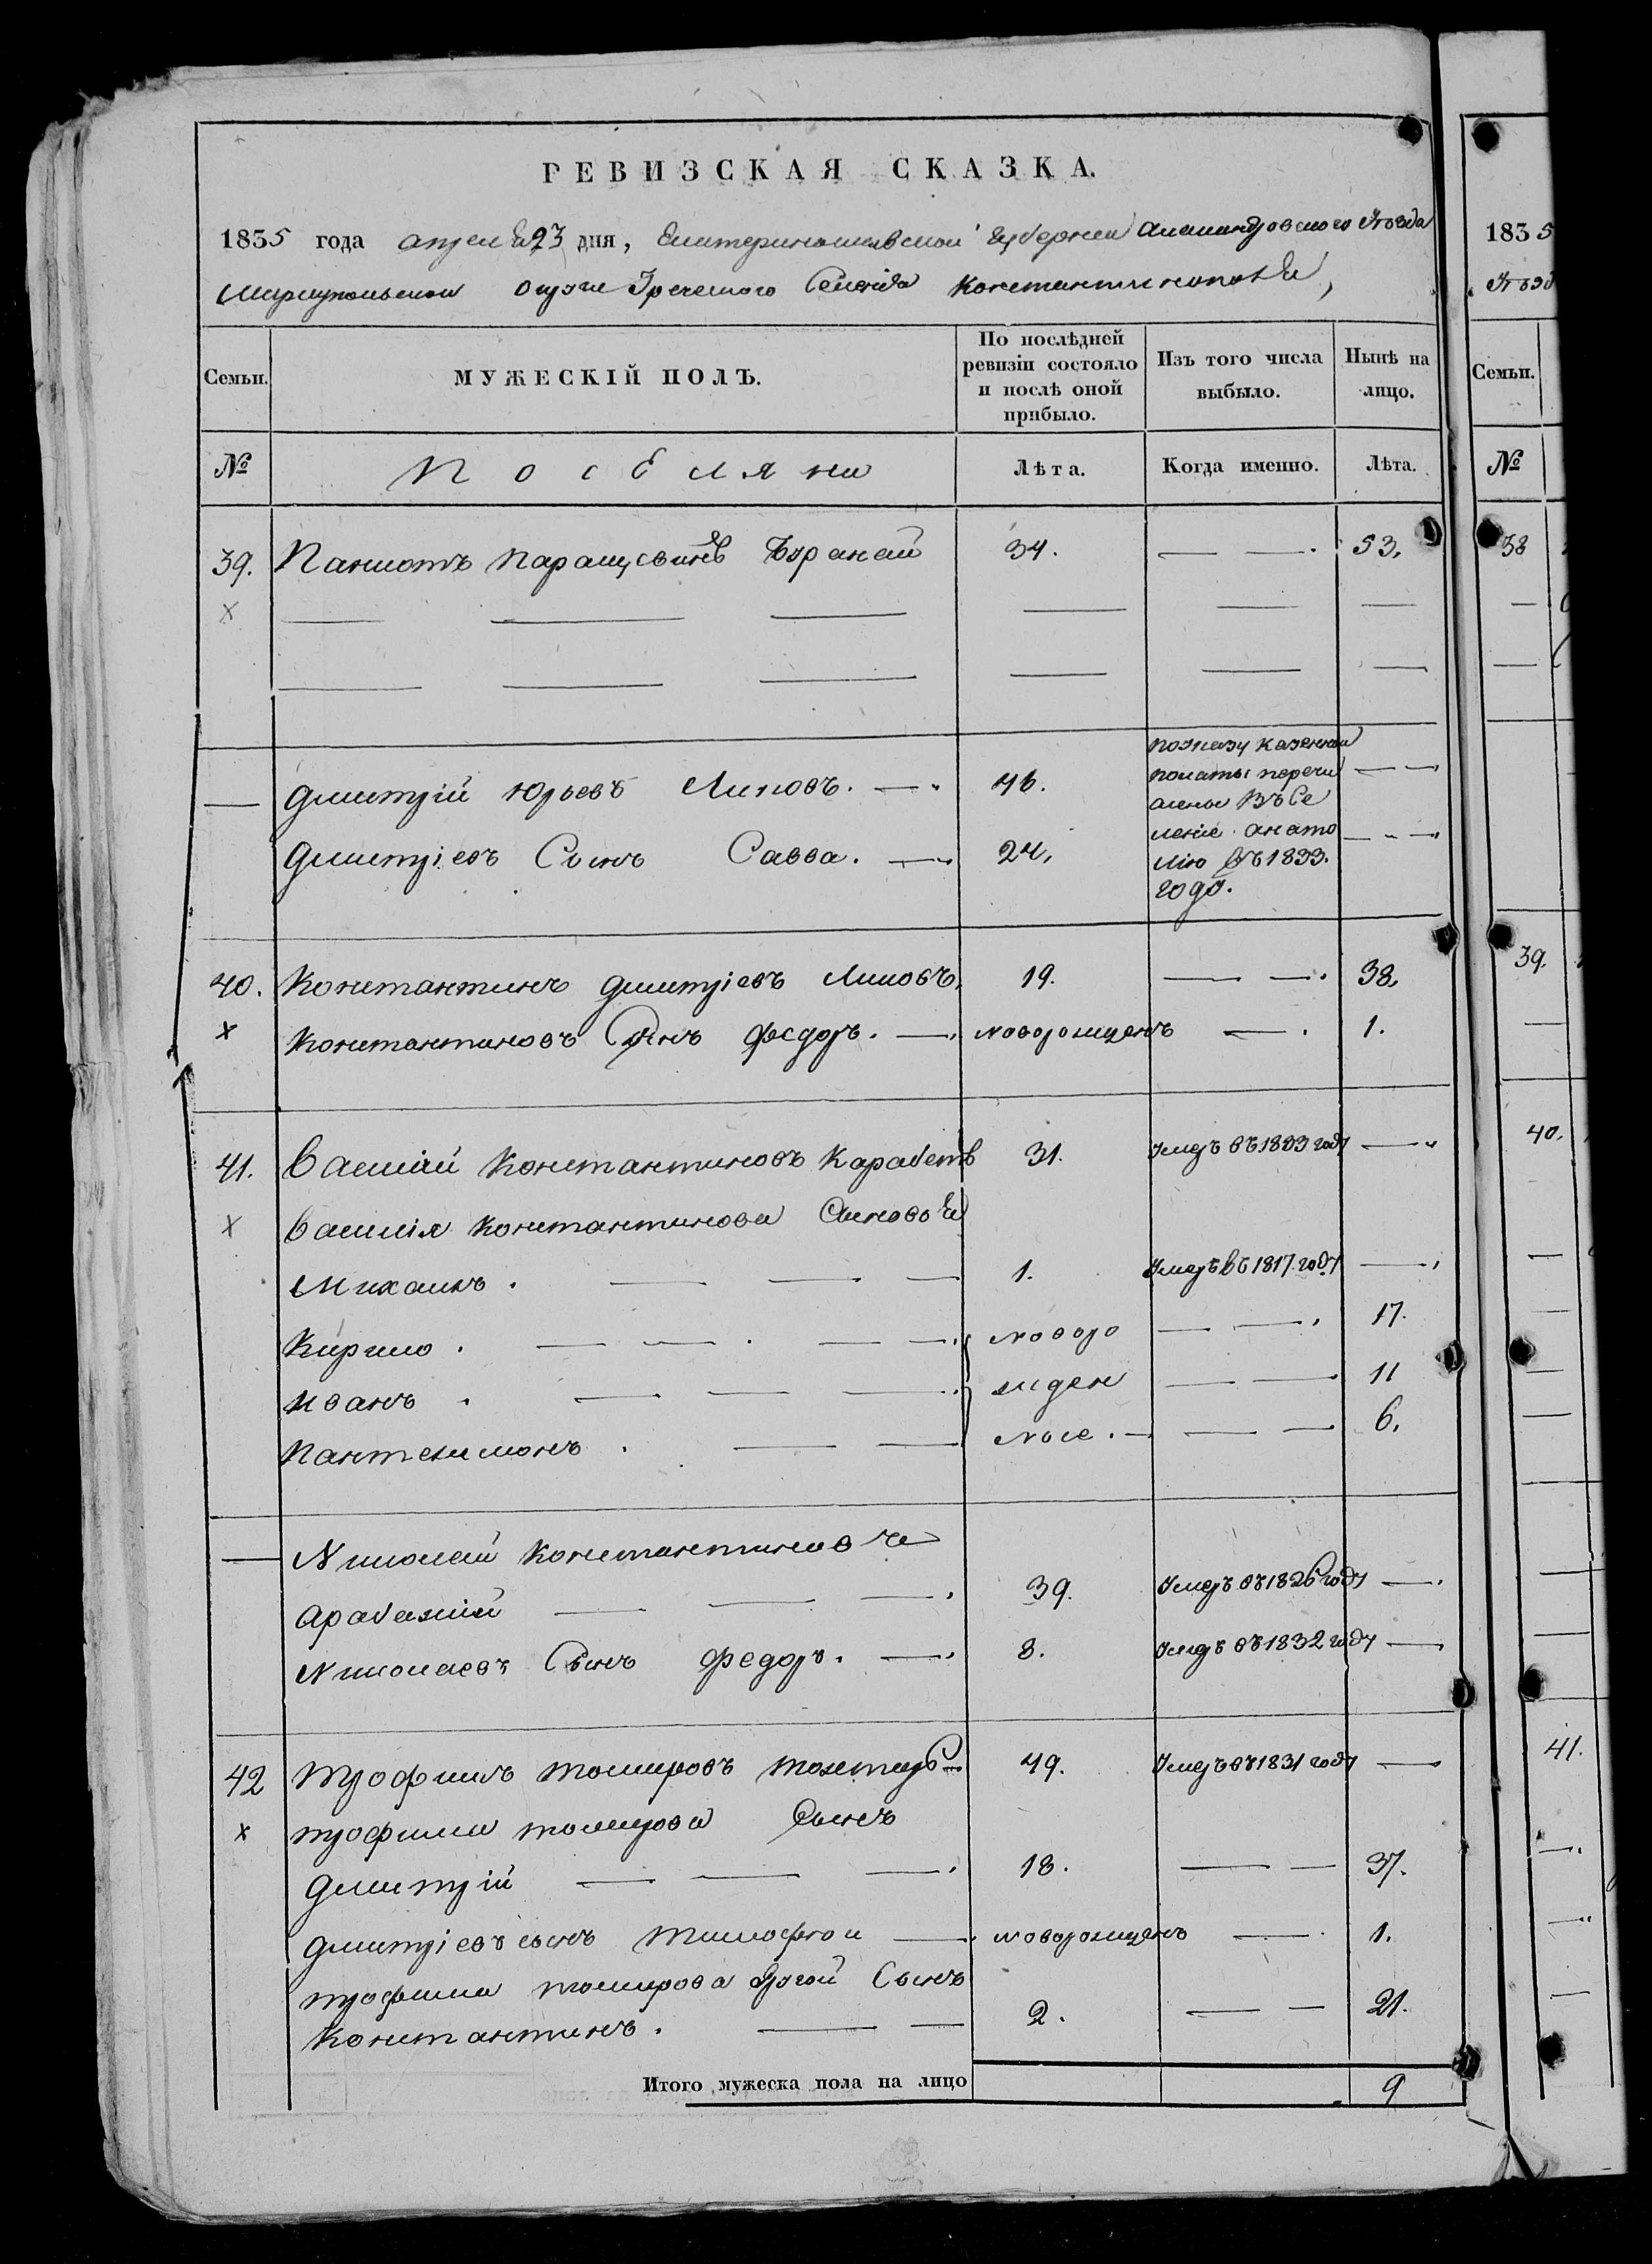 РЕВИЗСКАЯ СКАЗКА.
1835 года апреля 23 дня, Екатеринославской губернии Александровского Уѣзда
Мариупольскои округи Греческого Селенія Константинополя,
Семьи.
МУЖЕСКІЙ ПОЛЪ.
По послѣдней ревизіи состояло и послѣ оной прибыло.
Изъ того числа выбыло.
Нынѣ на лицо.
№
Поселяни
Лѣта.
Когда именно.
Лѣта.
39. Панаіотъ Паращевинъ 34. — — . 53.
— Дмитрій Юрьевъ Липовъ. — 46. — —
Дмитріевъ Сынъ Савва. — 24. — —
поуказу казеннои
полаты перечи
слены Въ Се
леніе анато
лію въ 1833.
годо.
40. Константинъ Дмитріевъ Липовъ, 19. — — . 38.
Константиновъ Сынъ Федоръ. — новорожденъ — . 1.
41. Василій Константиновъ 31. Умеръ въ 1833 году —
Василія Константинова Синовья
Михаилъ . — — — 1. Умеръ въ 1817. году —
Кирило . — — . — — новоро — — , 17.
Иванъ . — — — жден — — 11
Пантелимонъ . — — ные . — — — 6.
— Николай Константиновъ
— — — . 39. Умеръ въ 1826 году — .
Николаевъ Сынъ Федоръ. — 8. Умеръ въ 1832 году —
42 Трофимъ 49. Умеръ въ 1831 году —
Трофима Сынъ
Дмитрій — — — . 18. — — 37.
Дмитріевъ сынъ Тимофеи — новорожденъ — . 1.
Трофима другой Сынъ
Константинъ . — — 2. — — 21.
Итого мужеска пола на лицо 9
1835
Уѣзд
Семьи.
№
38
39.
40.
41.